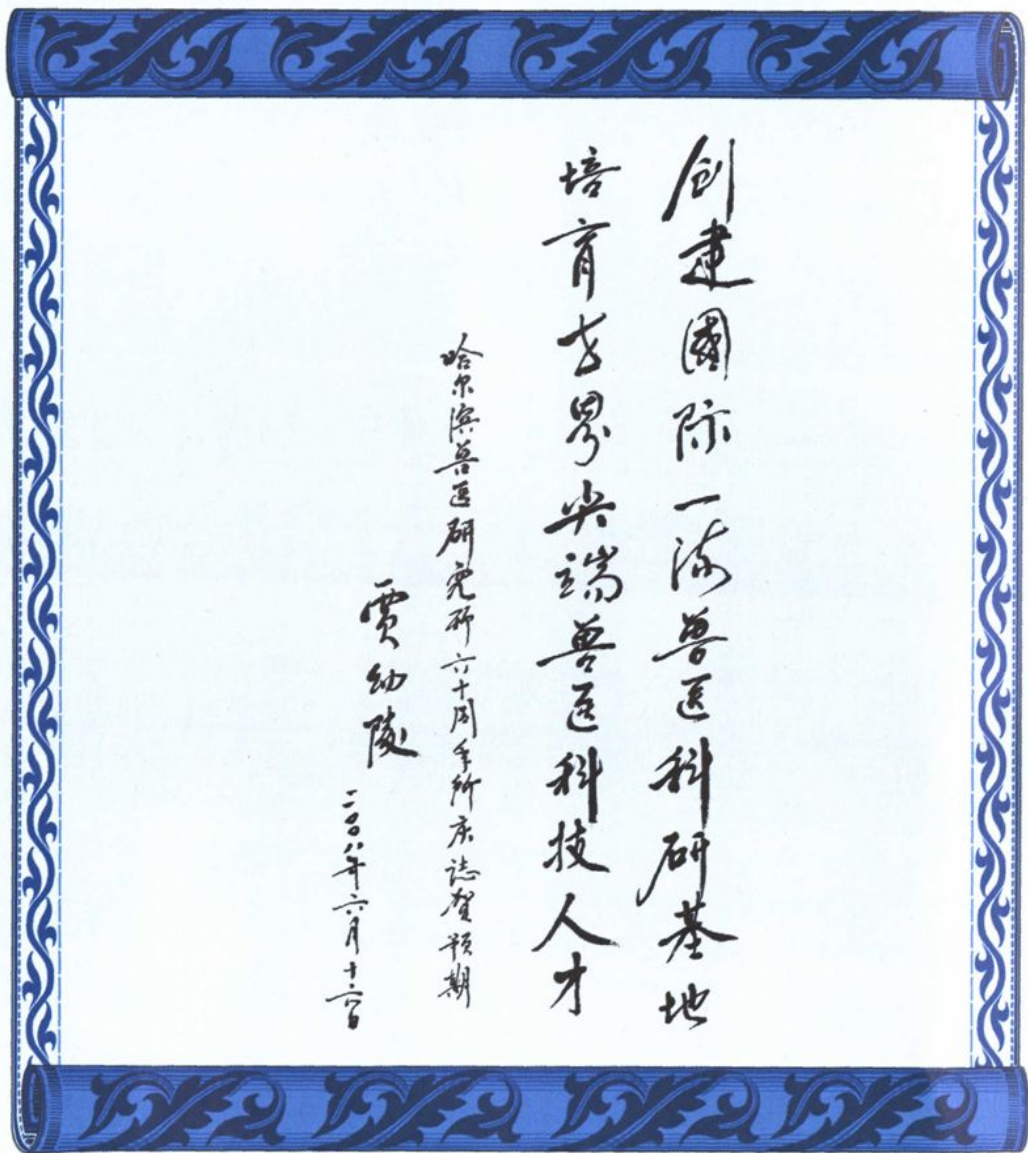 创建國际一流兽医科研基地
培育世界尖端兽医科技人才
哈尔滨兽医研究所六十周年所庆誌贺预期
贾幼陵
二〇〇八年六月十六日